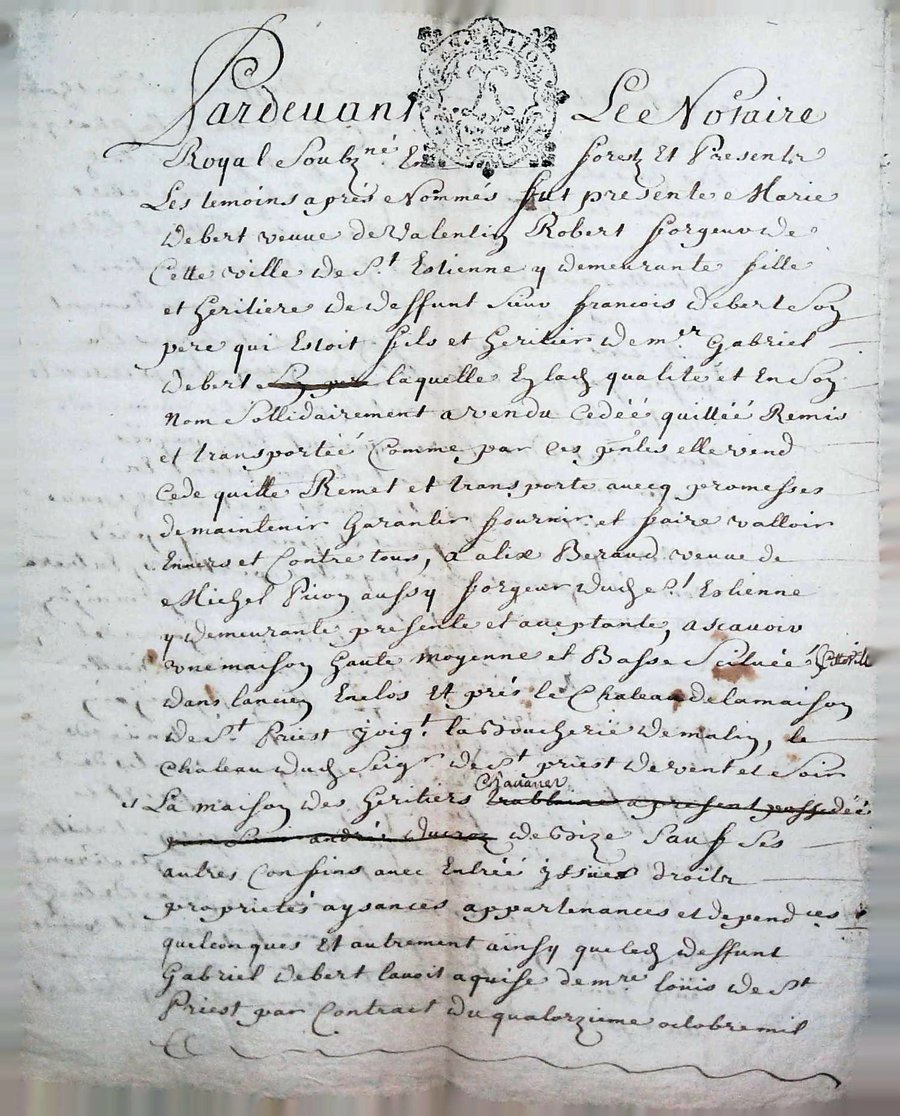 Pardevant Le Notaire
Royal soubzné En forestz Et Presentz
Les temoins aprés Nommés fut presente Marie
debert veuve de valentin Robert forgeur de
Cette ville de St Estienne y demeurante fille
et heritiere de deffunt sieur francois debert son
pere qui Estoit fils et heritier de mer Gabriel
debert laquelle En lad qualité et En son
nom sollidairement a vendu cedéé quittéé Remis
et transportéé Comme par ces pntes elle vend
cede quitte Remet et transporte avecq promesses
de maintenir Garantir fournir et faire valloir
Envers et Contre tous, a alix Beraud veuve de
Michel Picon aussy forgeur dud St Estienne
y demeurante presente et acceptante, ascavoir
une maison haute moyenne et Basse scituéé
dans lancien Enclos Et prés le Chateau de la maison
de St Priest joigt la Boucherie de matin, le
Chateau dud seigr de St priest de vent et soir
La maison des heritiers Chavanes a present possedéé
andré ducros de bize sauf ses
autres Confins avec Entréé yssues droitz
proprietés aysances appartenances et dependces
quelconques Et autrement ainsy que led deffunt
Gabriel debert lavoit aquise de mre loüis de St
Priest par Contrait du quatorzieme octobre mil